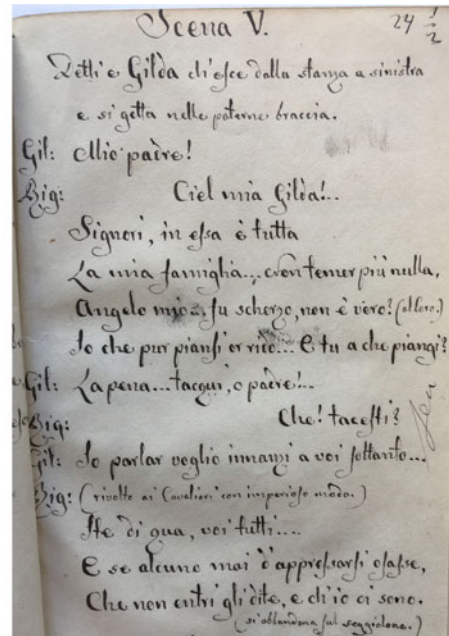 Scena V.
24 1/2
Detti e Gilda ch'esce dalla stanza a sinistra
e si getta nelle paterne braccia.
Gil: Mio padre!
Rig: Ciel mia Gilda!..
Signori, in essa è tutta
La mia famiglia... Non temer più nulla,
Angelo mio... fu scherzo, non è vero? (a loro.)
Io che pur piansi or rido... E tu a che piangi?
Gil: La pena... tacqui, o padre!..
Rig: Che! tacesti?
Gil: Io parlar voglio innanzi a voi soltanto...
Rig: (rivolto ai Cavalieri con imperioso modo.)
Ite di qua, voi tutti....
E se alcuno mai d'appressarsi osasse,
Che non entri gli dite, e ch'io ci sono.
(si abbandona sul seggiolone.)